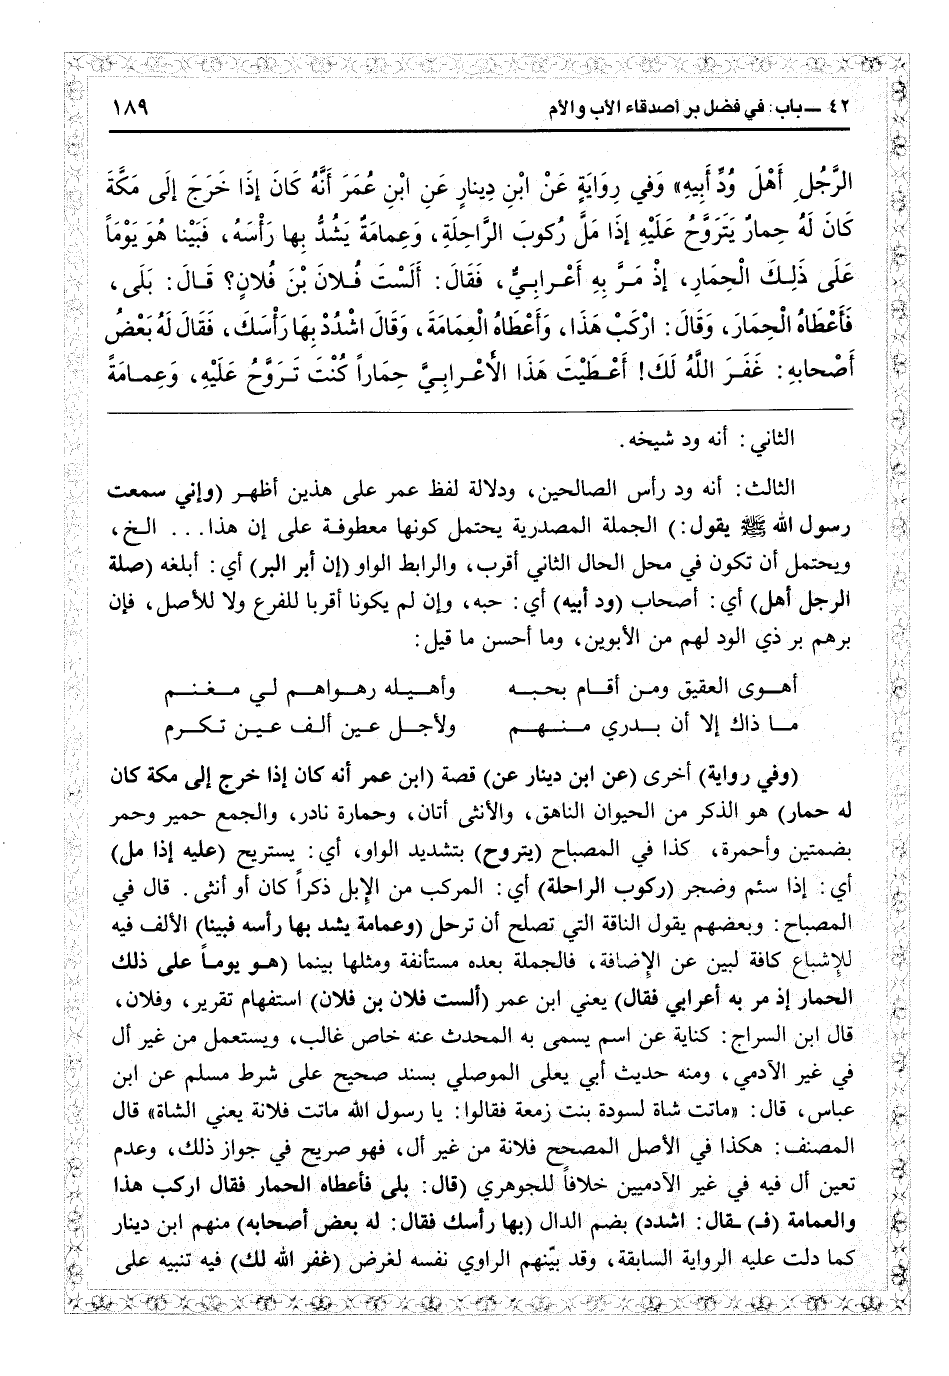 ٤٢ ــ باب: في فضل بر أصدقاء الأب والأم
١٨٩
الرَّجُلِ أَهْلَ وُدِّ أَبِيهِ» وَفي رِوَايَةٍ عَنْ ابْنِ دِينارٍ عَنِ ابْنِ عُمَرَ أَنَّهُ كَانَ إذَا خَرَجَ إلَى مَكَّةَ
كَانَ لَهُ حِمارٌ يَتَرَوَّحُ عَلَيْهِ إذَا مَلَّ رُكوبَ الرَّاحِلَةِ، وَعِمامَةٌ يَشُدُّ بِها رَأْسَهُ، فَبَيْنا هُوَ يَوْمَاً
عَلَى ذَلِكَ الْحِمَارِ، إذْ مَرَّ بِهِ أَعْرابِيٌّ، فَقَالَ: أَلَسْتَ فُلانَ بْنَ فُلانٍ؟ قَالَ: بَلَى،
فَأَعْطَاهُ الْحِمَارَ، وَقَالَ: ارْكَبْ هَذَا، وَأَعْطَاهُ الْعِمَامَةَ، وَقَالَ اشْدُدْ بِها رَأْسَكَ، فَقَالَ لَهُ بَعْضُ
أَصْحابِهِ: غَفَرَ اللَّهُ لَكَ! أَعْطَيْتَ هَذَا الأَعْرابِيَّ حِمَاراً كُنْتَ تَرَوَّحُ عَلَيْهِ، وَعِمامَةً
الثاني: أنه ود شيخه.
الثالث: أنه ود رأس الصالحين، ودلالة لفظ عمر على هذين أظهر (وإني سمعت
رسول الله ﷺ يقول:) الجملة المصدرية يحتمل كونها معطوفة على إن هذا... الخ،
ويحتمل أن تكون في محل الحال الثاني أقرب، والرابط الواو (إن أبر البر) أي: أبلغه (صلة
الرجل أهل) أي: أصحاب (ود أبيه) أي: حبه، وإن لم يكونا أقربا للفرع ولا للأصل، فإن
برهم بر ذي الود لهم من الأبوين، وما أحسن ما قيل:
أهوى العقيق ومن أقام بحبه وأهيله رهواهم لي مغنم
ما ذاك إلا أن بدري منهم ولأجل عين ألف عين تكرم
(وفي رواية) أخرى (عن ابن دينار عن) قصة (ابن عمر أنه كان إذا خرج إلى مكة كان
له حمار) هو الذكر من الحيوان الناهق، والأنثى أتان، وحمارة نادر، والجمع حمير وحمر
بضمتين وأحمرة، كذا في المصباح (يتروح) بتشديد الواو، أي: يستريح (عليه إذا مل)
أي: إذا سئم وضجر (ركوب الراحلة) أي: المركب من الإبل ذكراً كان أو أنثى. قال في
المصباح: وبعضهم يقول الناقة التي تصلح أن ترحل (وعمامة يشد بها رأسه فبينا) الألف فيه
للإشباع كافة لبين عن الإضافة، فالجملة بعده مستأنفة ومثلها بينما (هو يوماً على ذلك
الحمار إذ مر به أعرابي فقال) يعني ابن عمر (ألست فلان بن فلان) استفهام تقرير، وفلان،
قال ابن السراج: كناية عن اسم يسمى به المحدث عنه خاص غالب، ويستعمل من غير أل
في غير الآدمي، ومنه حديث أبي يعلى الموصلي بسند صحيح على شرط مسلم عن ابن
عباس، قال: «ماتت شاة لسودة بنت زمعة فقالوا: يا رسول الله ماتت فلانة يعني الشاة» قال
المصنف: هكذا في الأصل المصحح فلانة من غير أل، فهو صريح في جواز ذلك، وعدم
تعين أل فيه في غير الآدميين خلافاً للجوهري (قال: بلى فأعطاه الحمار فقال اركب هذا
والعمامة (فـ) ـقال: اشدد) بضم الدال (بها رأسك فقال: له بعض أصحابه) منهم ابن دينار
كما دلت عليه الرواية السابقة، وقد بيّنهم الراوي نفسه لغرض (غفر الله لك) فيه تنبيه على